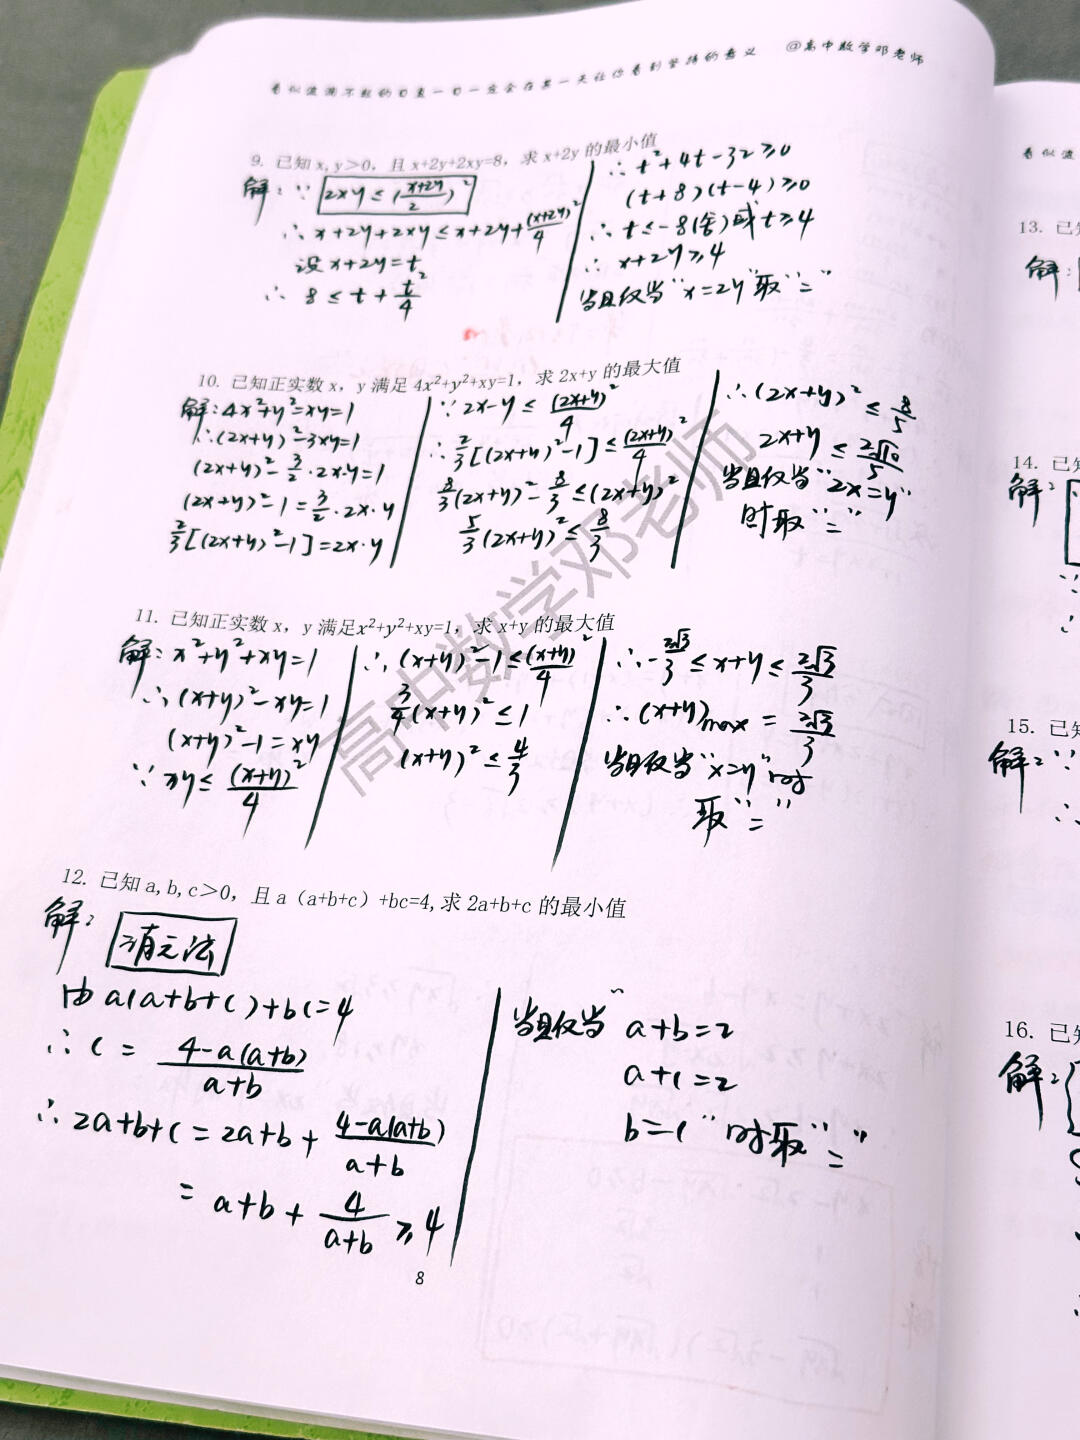 看似波澜不惊的日复一日一定会在某一天让你看到坚持的意义 @高中数学邓老师
9. 已知 x, y＞0, 且 x+2y+2xy=8, 求 x+2y 的最小值
解: ∵ 2xy ≤ (x+2y/2)²
∴ x+2y+2xy ≤ x+2y+(x+2y)²/4
设 x+2y=t
∴ 8 ≤ t + t²/4
∴ t²+4t-32≥0
(t+8)(t-4)≥0
∴ t≤-8(舍)或t≥4
∴ x+2y≥4
当且仅当"x=2y"取"="
10. 已知正实数 x, y 满足 4x²+y²+xy=1, 求 2x+y 的最大值
解: 4x²+y²=xy=1
∴(2x+y)²-3xy=1
(2x+y)²-3/2·2x·y=1
(2x+y)²-1=3/2·2x·y
2/3[(2x+y)²-1]=2x·y
∵ 2x·y ≤ (2x+y)²/4
∴ 2/3[(2x+y)²-1]≤(2x+y)²/4
8/3(2x+y)²-8/3≤(2x+y)²
5/3(2x+y)²≤8/3
∴(2x+y)²≤8/5
2x+y≤2√10/5
当且仅当"2x=y"
时取"="
11. 已知正实数 x, y 满足x²+y²+xy=1, 求 x+y 的最大值
解: x²+y²+xy=1
∴(x+y)²-xy=1
(x+y)²-1=xy
∵ xy≤(x+y)²/4
∴(x+y)²-1≤(x+y)²/4
3/4(x+y)²≤1
(x+y)²≤4/3
∴-2√3/3≤x+y≤2√3/3
∴(x+y)max=2√3/3
当且仅当"x=y"时
取"="
12. 已知 a,b,c＞0, 且 a（a+b+c）+bc=4,求 2a+b+c 的最小值
解:
消元法
由 a(a+b+c)+bc=4
∴ c=4-a(a+b)/a+b
∴ 2a+b+c=2a+b+4-a(a+b)/a+b
=a+b+4/a+b≥4
当且仅当"a+b=2
a+c=2
b=c"时取"="
8
高中数学邓老师
13. 已
解:
14. 已
解:
15. 已
解: ∵
∴
16. 已
解: